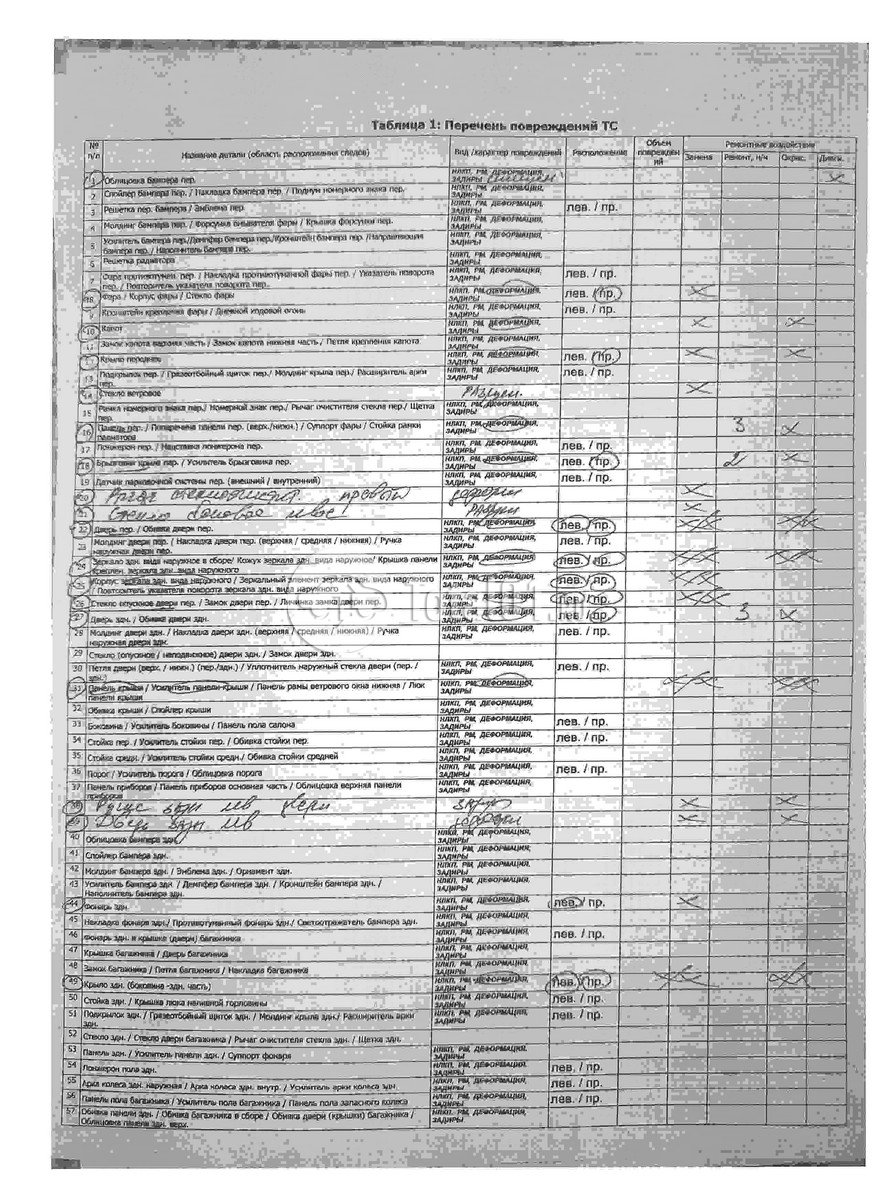 Таблица 1: Перечень повреждений ТС
№ п/п Название детали (область расположения следов) Вид /характер повреждений Расположение Объем повреждений Ремонтные воздействия
Замена Ремонт, н/ч Окрас.
1 Облицовка бампера пер. НЛКП, РМ, ДЕФОРМАЦИЯ, ЗАДИРЫ X
2 Спойлер бампера пер. / Накладка бампера пер. / Подиум номерного знака пер. НЛКП, РМ, ДЕФОРМАЦИЯ, ЗАДИРЫ
3 Решетка пер. бампера / Эмблема пер. НЛКП, РМ, ДЕФОРМАЦИЯ, ЗАДИРЫ лев. / пр.
4 Молдинг бампера пер. / Форсунка омывателя фары / Крышка форсунки пер. НЛКП, РМ, ДЕФОРМАЦИЯ, ЗАДИРЫ
5 Усилитель бампера пер./Демпфер бампера пер./Кронштейн бампера пер. /Направляющая бампера пер. / Наполнитель бампера пер. НЛКП, РМ, ДЕФОРМАЦИЯ, ЗАДИРЫ
6 Решетка радиатора НЛКП, РМ, ДЕФОРМАЦИЯ, ЗАДИРЫ
7 Фара противотуман. пер. / Накладка противотуманной фары пер. / Указатель поворота пер. / Повторитель указателя поворота пер. НЛКП, РМ, ДЕФОРМАЦИЯ, ЗАДИРЫ лев. / пр.
8 Фара / Корпус фары / Стекло фары НЛКП, РМ, ДЕФОРМАЦИЯ, ЗАДИРЫ лев. / пр. X
9 Кронштейн крепления фары / Дневной ходовой огонь НЛКП, РМ, ДЕФОРМАЦИЯ, ЗАДИРЫ лев. / пр.
10 Капот НЛКП, РМ, ДЕФОРМАЦИЯ, ЗАДИРЫ X X
11 Замок капота верхняя часть / Замок капота нижняя часть / Петля крепления капота НЛКП, РМ, ДЕФОРМАЦИЯ, ЗАДИРЫ
12 Крыло переднее НЛКП, РМ, ДЕФОРМАЦИЯ, ЗАДИРЫ лев. / пр. X X
13 Подкрылок пер. / Грязеотбойный щиток пер./ Молдинг крыла пер./ Расширитель арки пер. НЛКП, РМ, ДЕФОРМАЦИЯ, ЗАДИРЫ лев. / пр.
14 Стекло ветровое X
15 Рамка номерного знака пер./ Номерной знак пер./ Рычаг очистителя стекла пер./ Щетка пер. НЛКП, РМ, ДЕФОРМАЦИЯ, ЗАДИРЫ
16 Панель пер. / Поперечина панели пер. (верх./нижн.) / Суппорт фары / Стойка рамки радиатора НЛКП, РМ, ДЕФОРМАЦИЯ, ЗАДИРЫ 3 X
17 Лонжерон пер. / Надставка лонжерона пер. НЛКП, РМ, ДЕФОРМАЦИЯ, ЗАДИРЫ лев. / пр.
18 Брызговик крыла пер. / Усилитель брызговика пер. НЛКП, РМ, ДЕФОРМАЦИЯ, ЗАДИРЫ лев. / пр. 2 X
19 Датчик парковочной системы пер. (внешний / внутренний) НЛКП, РМ, ДЕФОРМАЦИЯ, ЗАДИРЫ лев. / пр.
20 X
21 Стекло боковое левое X
22 Дверь пер. / Обивка двери пер. НЛКП, РМ, ДЕФОРМАЦИЯ, ЗАДИРЫ лев. / пр. X/X X/X
23 Молдинг двери пер. ( Накладка двери пер. (верхняя / средняя / нижняя) / Ручка наружная двери пер. НЛКП, РМ, ДЕФОРМАЦИЯ, ЗАДИРЫ лев. / пр.
24 Зеркало здн. вида наружное в сборе/ Кожух зеркала здн. вида наружное/ Крышка панели креплен. зеркала здн. вида наружного НЛКП, РМ, ДЕФОРМАЦИЯ, ЗАДИРЫ лев. / пр. X/X X/X
25 Корпус зеркала здн. вида наружного / Зеркальный элемент зеркала здн. вида наружного / Повторитель указателя поворота зеркала здн. вида наружного НЛКП, РМ, ДЕФОРМАЦИЯ, ЗАДИРЫ лев. / пр. X/X
26 Стекло опускное двери пер. / Замок двери пер. / Личинка замка двери пер. лев. / пр. X/X
27 Дверь здн. / Обивка двери здн. НЛКП, РМ, ДЕФОРМАЦИЯ, ЗАДИРЫ лев. / пр. 3 X
28 Молдинг двери здн. / Накладка двери здн. (верхняя / средняя / нижняя) / Ручка наружная двери здн. НЛКП, РМ, ДЕФОРМАЦИЯ, ЗАДИРЫ лев. / пр.
29 Стекло (опускное / неподвижное) двери здн. / Замок двери здн.
30 Петля двери (верх. / нижн.) (пер./здн.) / Уплотнитель наружный стекла двери (пер. / здн.) НЛКП, РМ, ДЕФОРМАЦИЯ, ЗАДИРЫ лев. / пр.
31 Панель крыши / Усилитель панели крыши / Панель рамы ветрового окна нижняя / Люк панели крыши НЛКП, РМ, ДЕФОРМАЦИЯ, ЗАДИРЫ X/X X/X
32 Обивка крыши / Спойлер крыши НЛКП, РМ, ДЕФОРМАЦИЯ, ЗАДИРЫ
33 Боковина / Усилитель боковины / Панель пола салона НЛКП, РМ, ДЕФОРМАЦИЯ, ЗАДИРЫ лев. / пр.
34 Стойка пер. / Усилитель стойки пер. / Обивка стойки пер. НЛКП, РМ, ДЕФОРМАЦИЯ, ЗАДИРЫ лев. / пр.
35 Стойка средн. / Усилитель стойки средн. / Обивка стойки средней НЛКП, РМ, ДЕФОРМАЦИЯ, ЗАДИРЫ
36 Порог / Усилитель порога / Облицовка порога НЛКП, РМ, ДЕФОРМАЦИЯ, ЗАДИРЫ лев. / пр.
37 Панель приборов / Панель приборов основная часть / Облицовка верхняя панели приборов НЛКП, РМ, ДЕФОРМАЦИЯ, ЗАДИРЫ
38 X X
39 Дверь здн лев X X
40 Облицовка бампера здн. НЛКП, РМ, ДЕФОРМАЦИЯ, ЗАДИРЫ
41 Спойлер бампера здн. НЛКП, РМ, ДЕФОРМАЦИЯ, ЗАДИРЫ
42 Молдинг бампера здн. / Эмблема здн. / Орнамент здн. НЛКП, РМ, ДЕФОРМАЦИЯ, ЗАДИРЫ
43 Усилитель бампера здн. / Демпфер бампера здн. / Кронштейн бампера здн. / Наполнитель бампера здн. НЛКП, РМ, ДЕФОРМАЦИЯ, ЗАДИРЫ
44 Фонарь здн. НЛКП, РМ, ДЕФОРМАЦИЯ, ЗАДИРЫ лев. / пр. X
45 Накладка фонаря здн./ Противотуманный фонарь здн./ Светоотражатель бампера здн. НЛКП, РМ, ДЕФОРМАЦИЯ, ЗАДИРЫ
46 Фонарь здн. в крышке (двери) багажника НЛКП, РМ, ДЕФОРМАЦИЯ, ЗАДИРЫ лев. / пр.
47 Крышка багажника / Дверь багажника НЛКП, РМ, ДЕФОРМАЦИЯ, ЗАДИРЫ
48 Замок багажника / Петля багажника / Накладка багажника НЛКП, РМ, ДЕФОРМАЦИЯ, ЗАДИРЫ
49 Крыло здн. (боковина -здн. часть) НЛКП, РМ, ДЕФОРМАЦИЯ, ЗАДИРЫ лев. / пр. X/X X/X
50 Стойка здн. / Крышка люка наливной горловины НЛКП, РМ, ДЕФОРМАЦИЯ, ЗАДИРЫ лев. / пр.
51 Подкрылок здн. / Грязеотбойный щиток здн. / Молдинг крыла здн./ Расширитель арки здн. НЛКП, РМ, ДЕФОРМАЦИЯ, ЗАДИРЫ лев. / пр.
52 Стекло здн. / Стекло двери багажника / Рычаг очистителя стекла здн. / Щетка здн.
53 Панель здн. / Усилитель панели здн. / Суппорт фонаря НЛКП, РМ, ДЕФОРМАЦИЯ, ЗАДИРЫ
54 Лонжерон пола здн. НЛКП, РМ, ДЕФОРМАЦИЯ, ЗАДИРЫ лев. / пр.
55 Арка колеса здн. наружная / Арка колеса здн. внутр. / Усилитель арки колеса здн. НЛКП, РМ, ДЕФОРМАЦИЯ, ЗАДИРЫ лев. / пр.
56 Панель пола багажника / Усилитель пола багажника / Панель пола запасного колеса НЛКП, РМ, ДЕФОРМАЦИЯ, ЗАДИРЫ лев. / пр.
57 Обивка панели здн. / Обивка багажника в сборе / Обивка двери (крышки) багажника / Облицовка панели здн. верх. НЛКП, РМ, ДЕФОРМАЦИЯ, ЗАДИРЫ